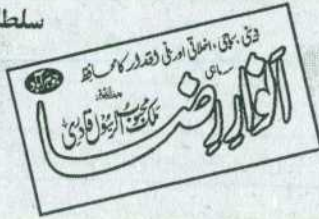 سلطا
دینی، سماجی، اخلاقی اور ملی اقدار کا محافظ
سہ ماہی
انوارِ رضا
جوہرآباد
ملک محبوب الرسول قادری